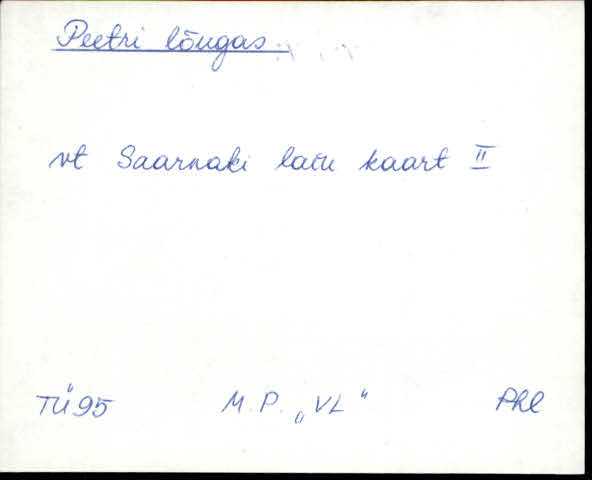 Peetri lõugas
vt Saarnaki laiu kaart II
TÜ 95 M. P. „VL“ Phl